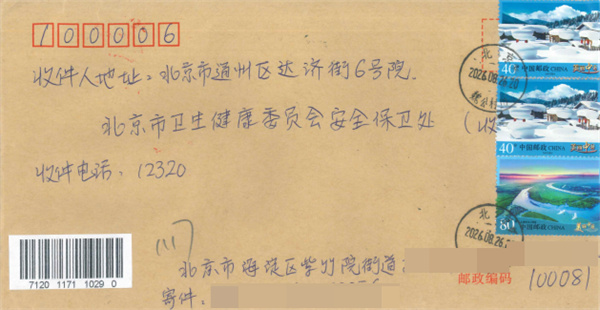 100006
收件人地址:北京市通州区达济街6号院.
北京市卫生健康委员会安全保卫处 (收
收件电话:12320
40分
中国邮政 CHINA
40分
中国邮政 CHINA
80分
中国邮政 CHINA
北京
2026.08.26.20
北京
2026.08.26.
7120 1171 1029 0
北京市海淀区紫竹院街道
寄件.
邮政编码 100081